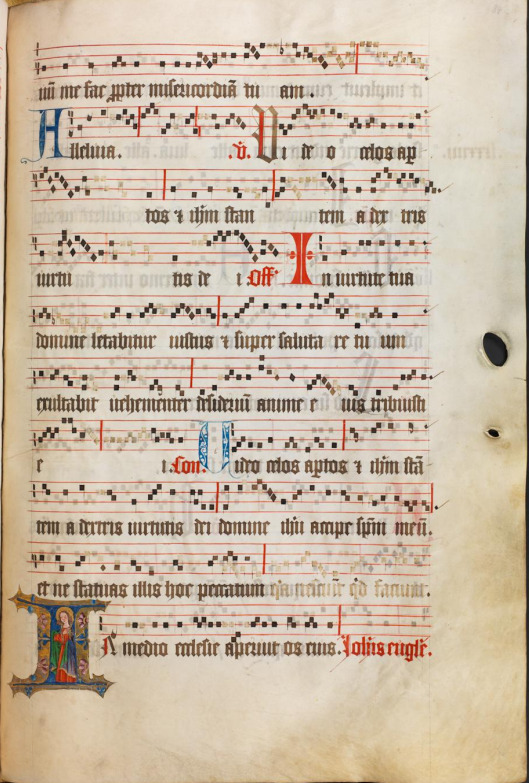 uū me fac ꝓpter misericordiā tu am
Alleluia. .v̄. Vi de o celos ap
tos ⁊ ihm̄ stan tem a dex tris
uirtu tis de i .Off. In uirtute tua
domine letabitur iustus ⁊ super saluta re tu um
exultabit uehementer desideriū anime e ius tribuisti
e i .Com̄. Uideo celos aꝑtos ⁊ ihm̄ stā
tem a dextris uirtutis dei domine ihū accipe spm̄ meū.
et ne statuas illis hoc peccatum quia nesciūt qd faciunt.
In medio ecclesie aperuit os eius. Johīs eūgl̄r.